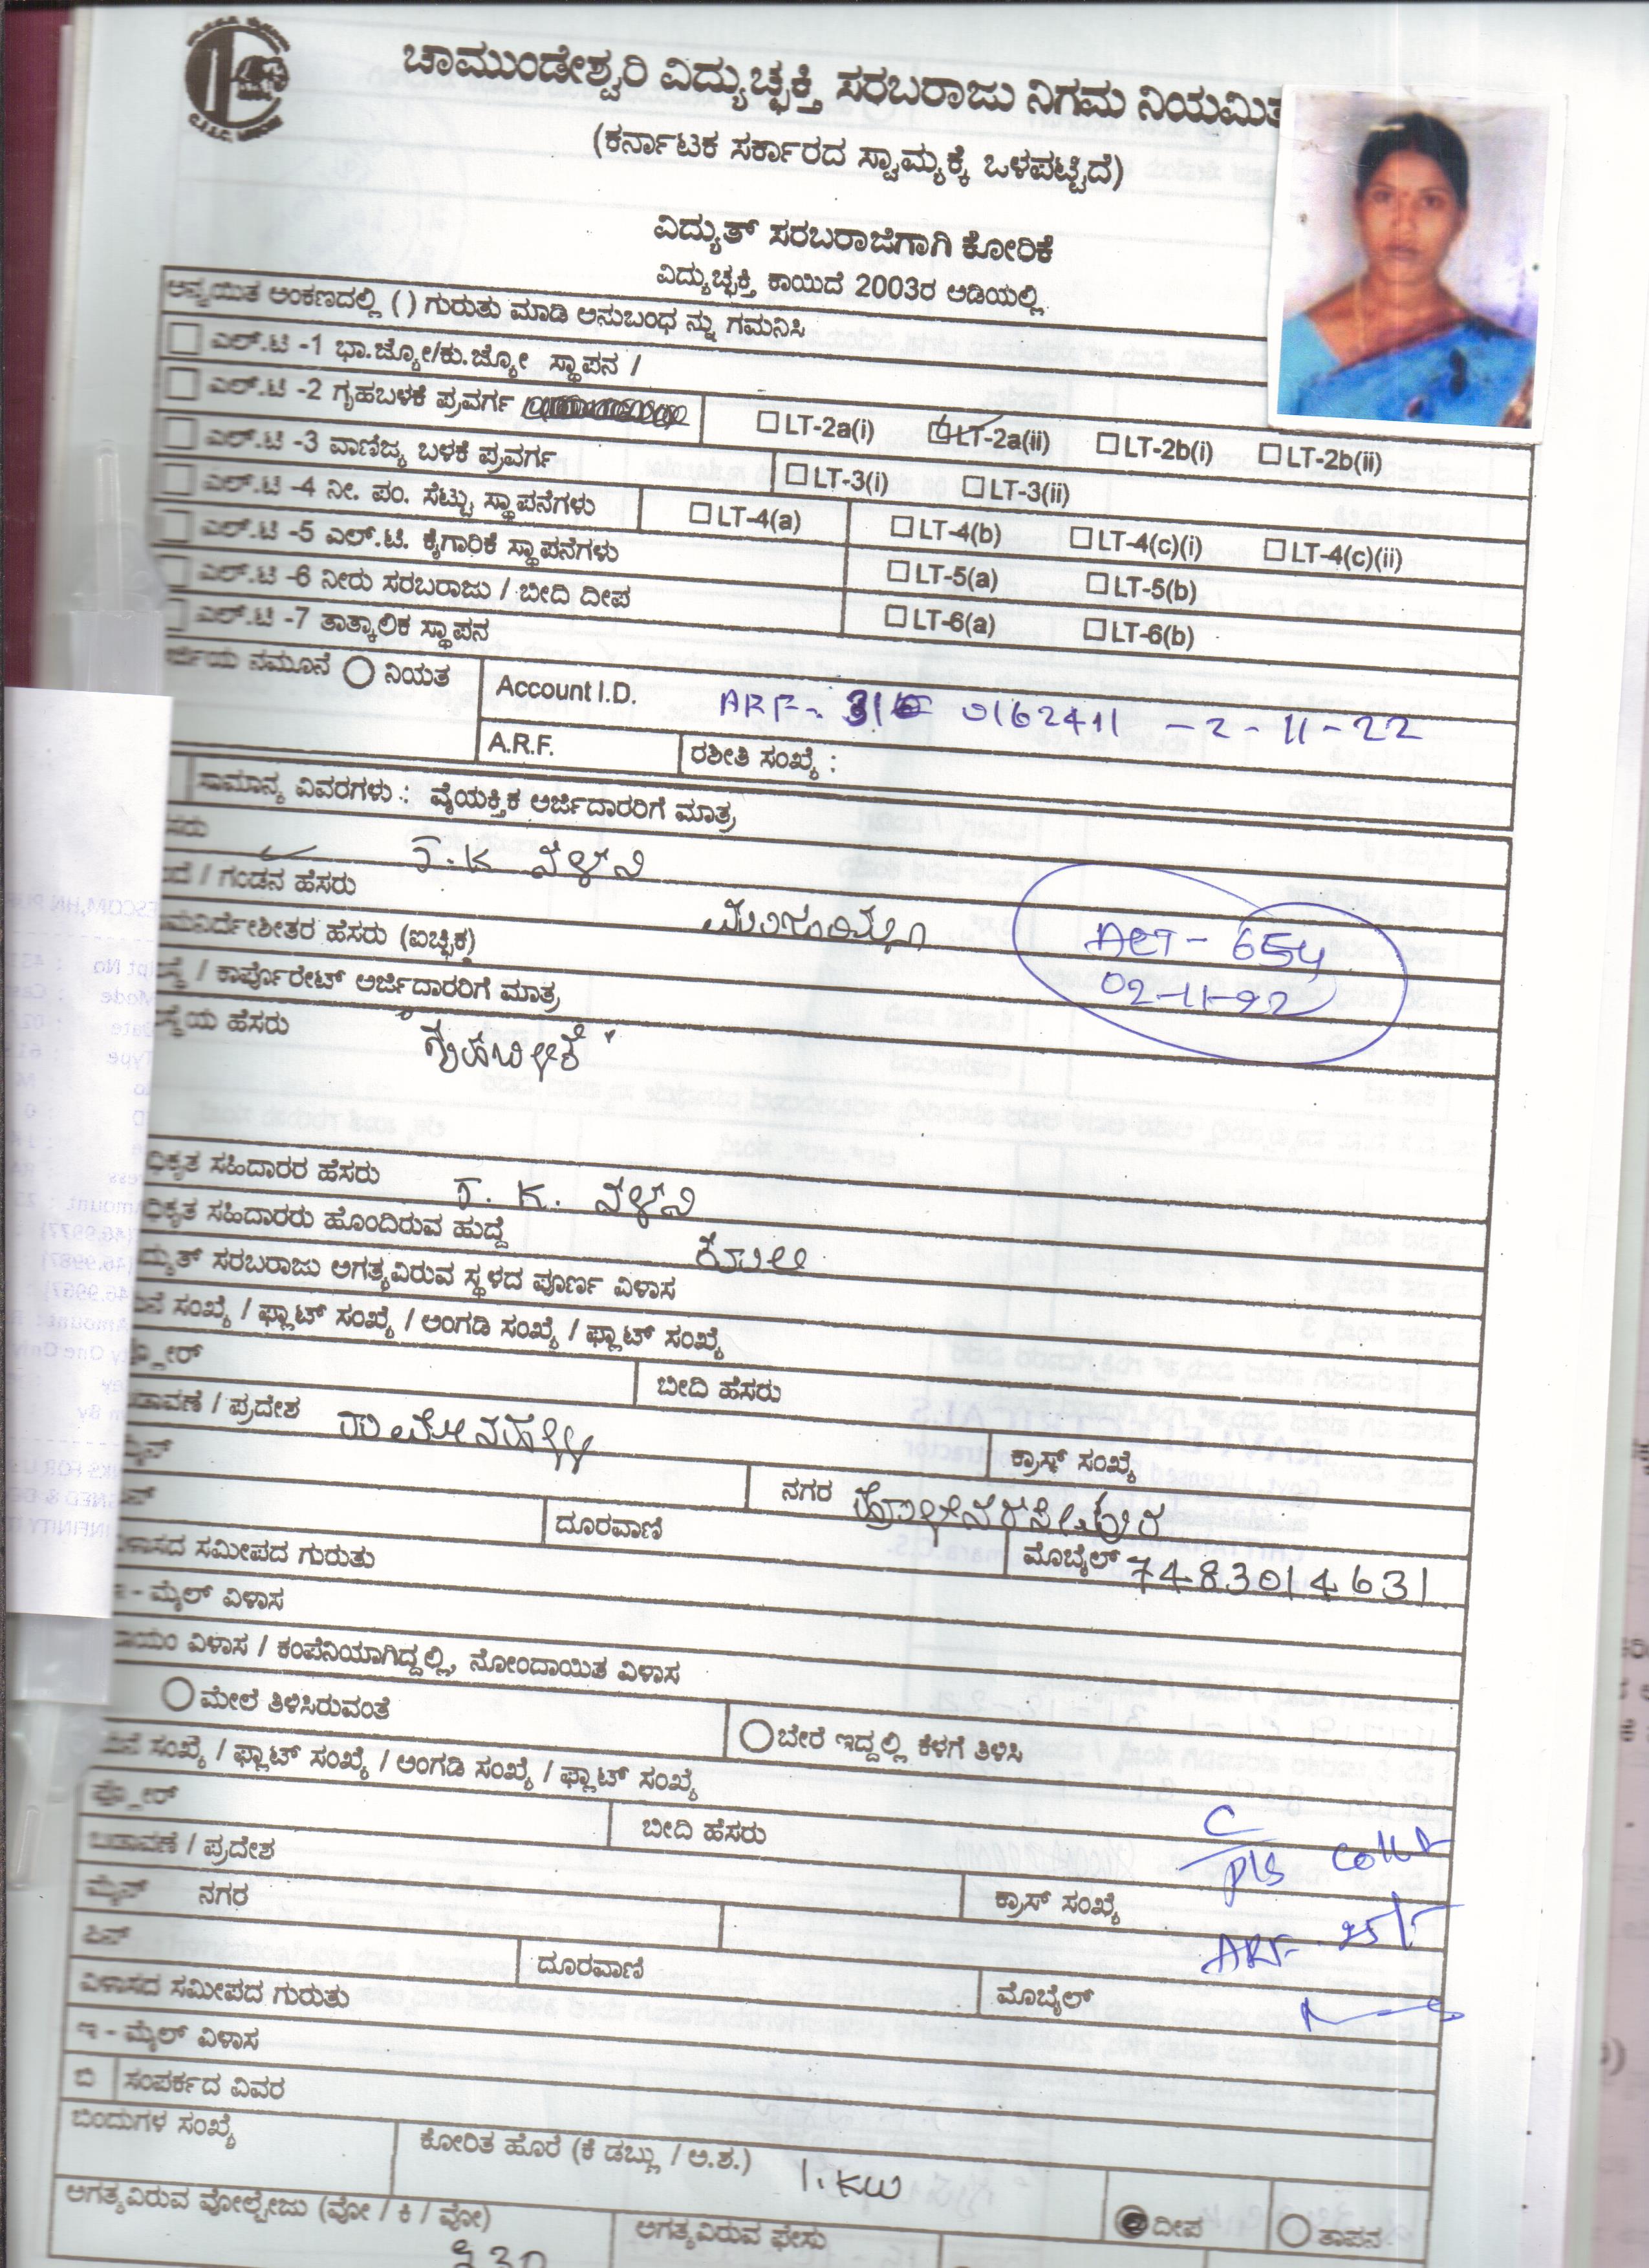 ಚಾಮುಂಡೇಶ್ವರಿ ವಿದ್ಯುಚ್ಛಕ್ತಿ ಸರಬರಾಜು ನಿಗಮ ನಿಯಮಿತ
(ಕರ್ನಾಟಕ ಸರ್ಕಾರದ ಸ್ವಾಮ್ಯಕ್ಕೆ ಒಳಪಟ್ಟಿದೆ)
ವಿದ್ಯುತ್ ಸರಬರಾಜಿಗಾಗಿ ಕೋರಿಕೆ
ವಿದ್ಯುಚ್ಛಕ್ತಿ ಕಾಯಿದೆ 2003ರ ಅಡಿಯಲ್ಲಿ
ಅನ್ವಯಿತ ಅಂಕಣದಲ್ಲಿ ( ) ಗುರುತು ಮಾಡಿ ಅನುಬಂಧ ನ್ನು ಗಮನಿಸಿ
ಎಲ್.ಟಿ -1 ಭಾ.ಜ್ಯೋ/ಕು.ಜ್ಯೋ ಸ್ಥಾಪನ /
ಎಲ್.ಟಿ -2 ಗೃಹಬಳಕೆ ಪ್ರವರ್ಗ LT-2a(i) LT-2a(ii) LT-2b(i) LT-2b(ii)
ಎಲ್.ಟಿ -3 ವಾಣಿಜ್ಯ ಬಳಕೆ ಪ್ರವರ್ಗ LT-3(i) LT-3(ii)
ಎಲ್.ಟಿ -4 ನೀ. ಪಂ. ಸೆಟ್ಟು ಸ್ಥಾಪನೆಗಳು LT-4(a) LT-4(b) LT-4(c)(i) LT-4(c)(ii)
ಎಲ್.ಟಿ -5 ಎಲ್.ಟಿ. ಕೈಗಾರಿಕೆ ಸ್ಥಾಪನೆಗಳು LT-5(a) LT-5(b)
ಎಲ್.ಟಿ -6 ನೀರು ಸರಬರಾಜು / ಬೀದಿ ದೀಪ LT-6(a) LT-6(b)
ಎಲ್.ಟಿ -7 ತಾತ್ಕಾಲಿಕ ಸ್ಥಾಪನ
ರ್ಜಿಯ ನಮೂನೆ ನಿಯತ Account I.D. ARF- 0162411 -2-11-22
A.R.F. ರಶೀತಿ ಸಂಖ್ಯೆ :
ಸಾಮಾನ್ಯ ವಿವರಗಳು : ವೈಯಕ್ತಿಕ ಅರ್ಜಿದಾರರಿಗೆ ಮಾತ್ರ
ಸರು T.K
ದೆ / ಗಂಡನ ಹೆಸರು
ಮನಿರ್ದೇಶೀತರ ಹೆಸರು (ಐಚ್ಛಿಕ) ACT - 654
ಸ್ಥೆ / ಕಾರ್ಪೊರೇಟ್ ಅರ್ಜಿದಾರರಿಗೆ ಮಾತ್ರ 02-11-22
ಸ್ಥೆಯ ಹೆಸರು ಗೃಹಬಳಕೆ
ಧಿಕೃತ ಸಹಿದಾರರ ಹೆಸರು T. K.
ಧಿಕೃತ ಸಹಿದಾರರು ಹೊಂದಿರುವ ಹುದ್ದೆ ಕೂಲಿ
ದ್ಯುತ್ ಸರಬರಾಜು ಅಗತ್ಯವಿರುವ ಸ್ಥಳದ ಪೂರ್ಣ ವಿಳಾಸ
ನೆ ಸಂಖ್ಯೆ / ಫ್ಲಾಟ್ ಸಂಖ್ಯೆ / ಅಂಗಡಿ ಸಂಖ್ಯೆ / ಫ್ಲಾಟ್ ಸಂಖ್ಯೆ
ಫ್ಲೋರ್ ಬೀದಿ ಹೆಸರು
ಡಾವಣೆ / ಪ್ರದೇಶ
ಮೈನ್ ಕ್ರಾಸ್ ಸಂಖ್ಯೆ
ನಗರ ಹೊಳೆನರಸೀಪುರ
ದೂರವಾಣಿ ಮೊಬೈಲ್ 7483014631
ಳಾಸದ ಸಮೀಪದ ಗುರುತು
ಇ - ಮೈಲ್ ವಿಳಾಸ
ಾಯಂ ವಿಳಾಸ / ಕಂಪೆನಿಯಾಗಿದ್ದಲ್ಲಿ, ನೋಂದಾಯಿತ ವಿಳಾಸ
ಮೇಲೆ ತಿಳಿಸಿರುವಂತೆ ಬೇರೆ ಇದ್ದಲ್ಲಿ ಕೆಳಗೆ ತಿಳಿಸಿ
ನೆ ಸಂಖ್ಯೆ / ಫ್ಲಾಟ್ ಸಂಖ್ಯೆ / ಅಂಗಡಿ ಸಂಖ್ಯೆ / ಫ್ಲಾಟ್ ಸಂಖ್ಯೆ
ಫ್ಲೋರ್ ಬೀದಿ ಹೆಸರು
ಬಡಾವಣೆ / ಪ್ರದೇಶ
ಮೈನ್ ನಗರ ಕ್ರಾಸ್ ಸಂಖ್ಯೆ
ಪಿನ್ ದೂರವಾಣಿ ಮೊಬೈಲ್ ARF
ವಿಳಾಸದ ಸಮೀಪದ ಗುರುತು
ಇ - ಮೈಲ್ ವಿಳಾಸ
ಬಿ ಸಂಪರ್ಕದ ವಿವರ
ಬಿಂದುಗಳ ಸಂಖ್ಯೆ ಕೋರಿತ ಹೊರೆ (ಕೆ ಡಬ್ಲ್ಯು / ಅ.ಶ.) 1.KW ದೀಪ ತಾಪನ
ಅಗತ್ಯವಿರುವ ವೋಲ್ಟೇಜು (ವೋ / ಕಿ / ವೋ) ಅಗತ್ಯವಿರುವ ಫೇಸು